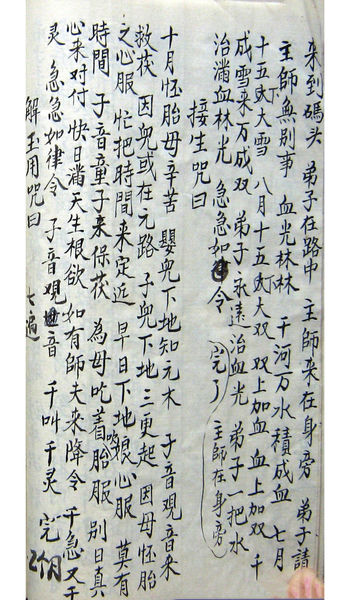 来到碼头 弟子在路中 主師来在身旁 弟子請
主師無别事 血光林林 千河万水積成血 七月
十五下大雪 八月十五下大双 双上加血 血上加双 千
成雪来万成双 弟子永遠治血光 弟子一把水
治满血林光 急急如令 完了 主師在身旁
接生咒曰
十月怀胎母辛苦 嬰兒下地知元木 子音觀音来
救莰 因兒或在元路 子兒下地三更起 因母怀胎
之心服 忙把時間来定近 早日下地哴心服 莫有
時間 子音童子来保莰 為母吃着胎服 别日真
心来对付 快日满天生根欲 如有師夫来降令 千急又千
灵 急急如律令 子音觀音 千叫千灵 完
解玉用咒曰 七遍